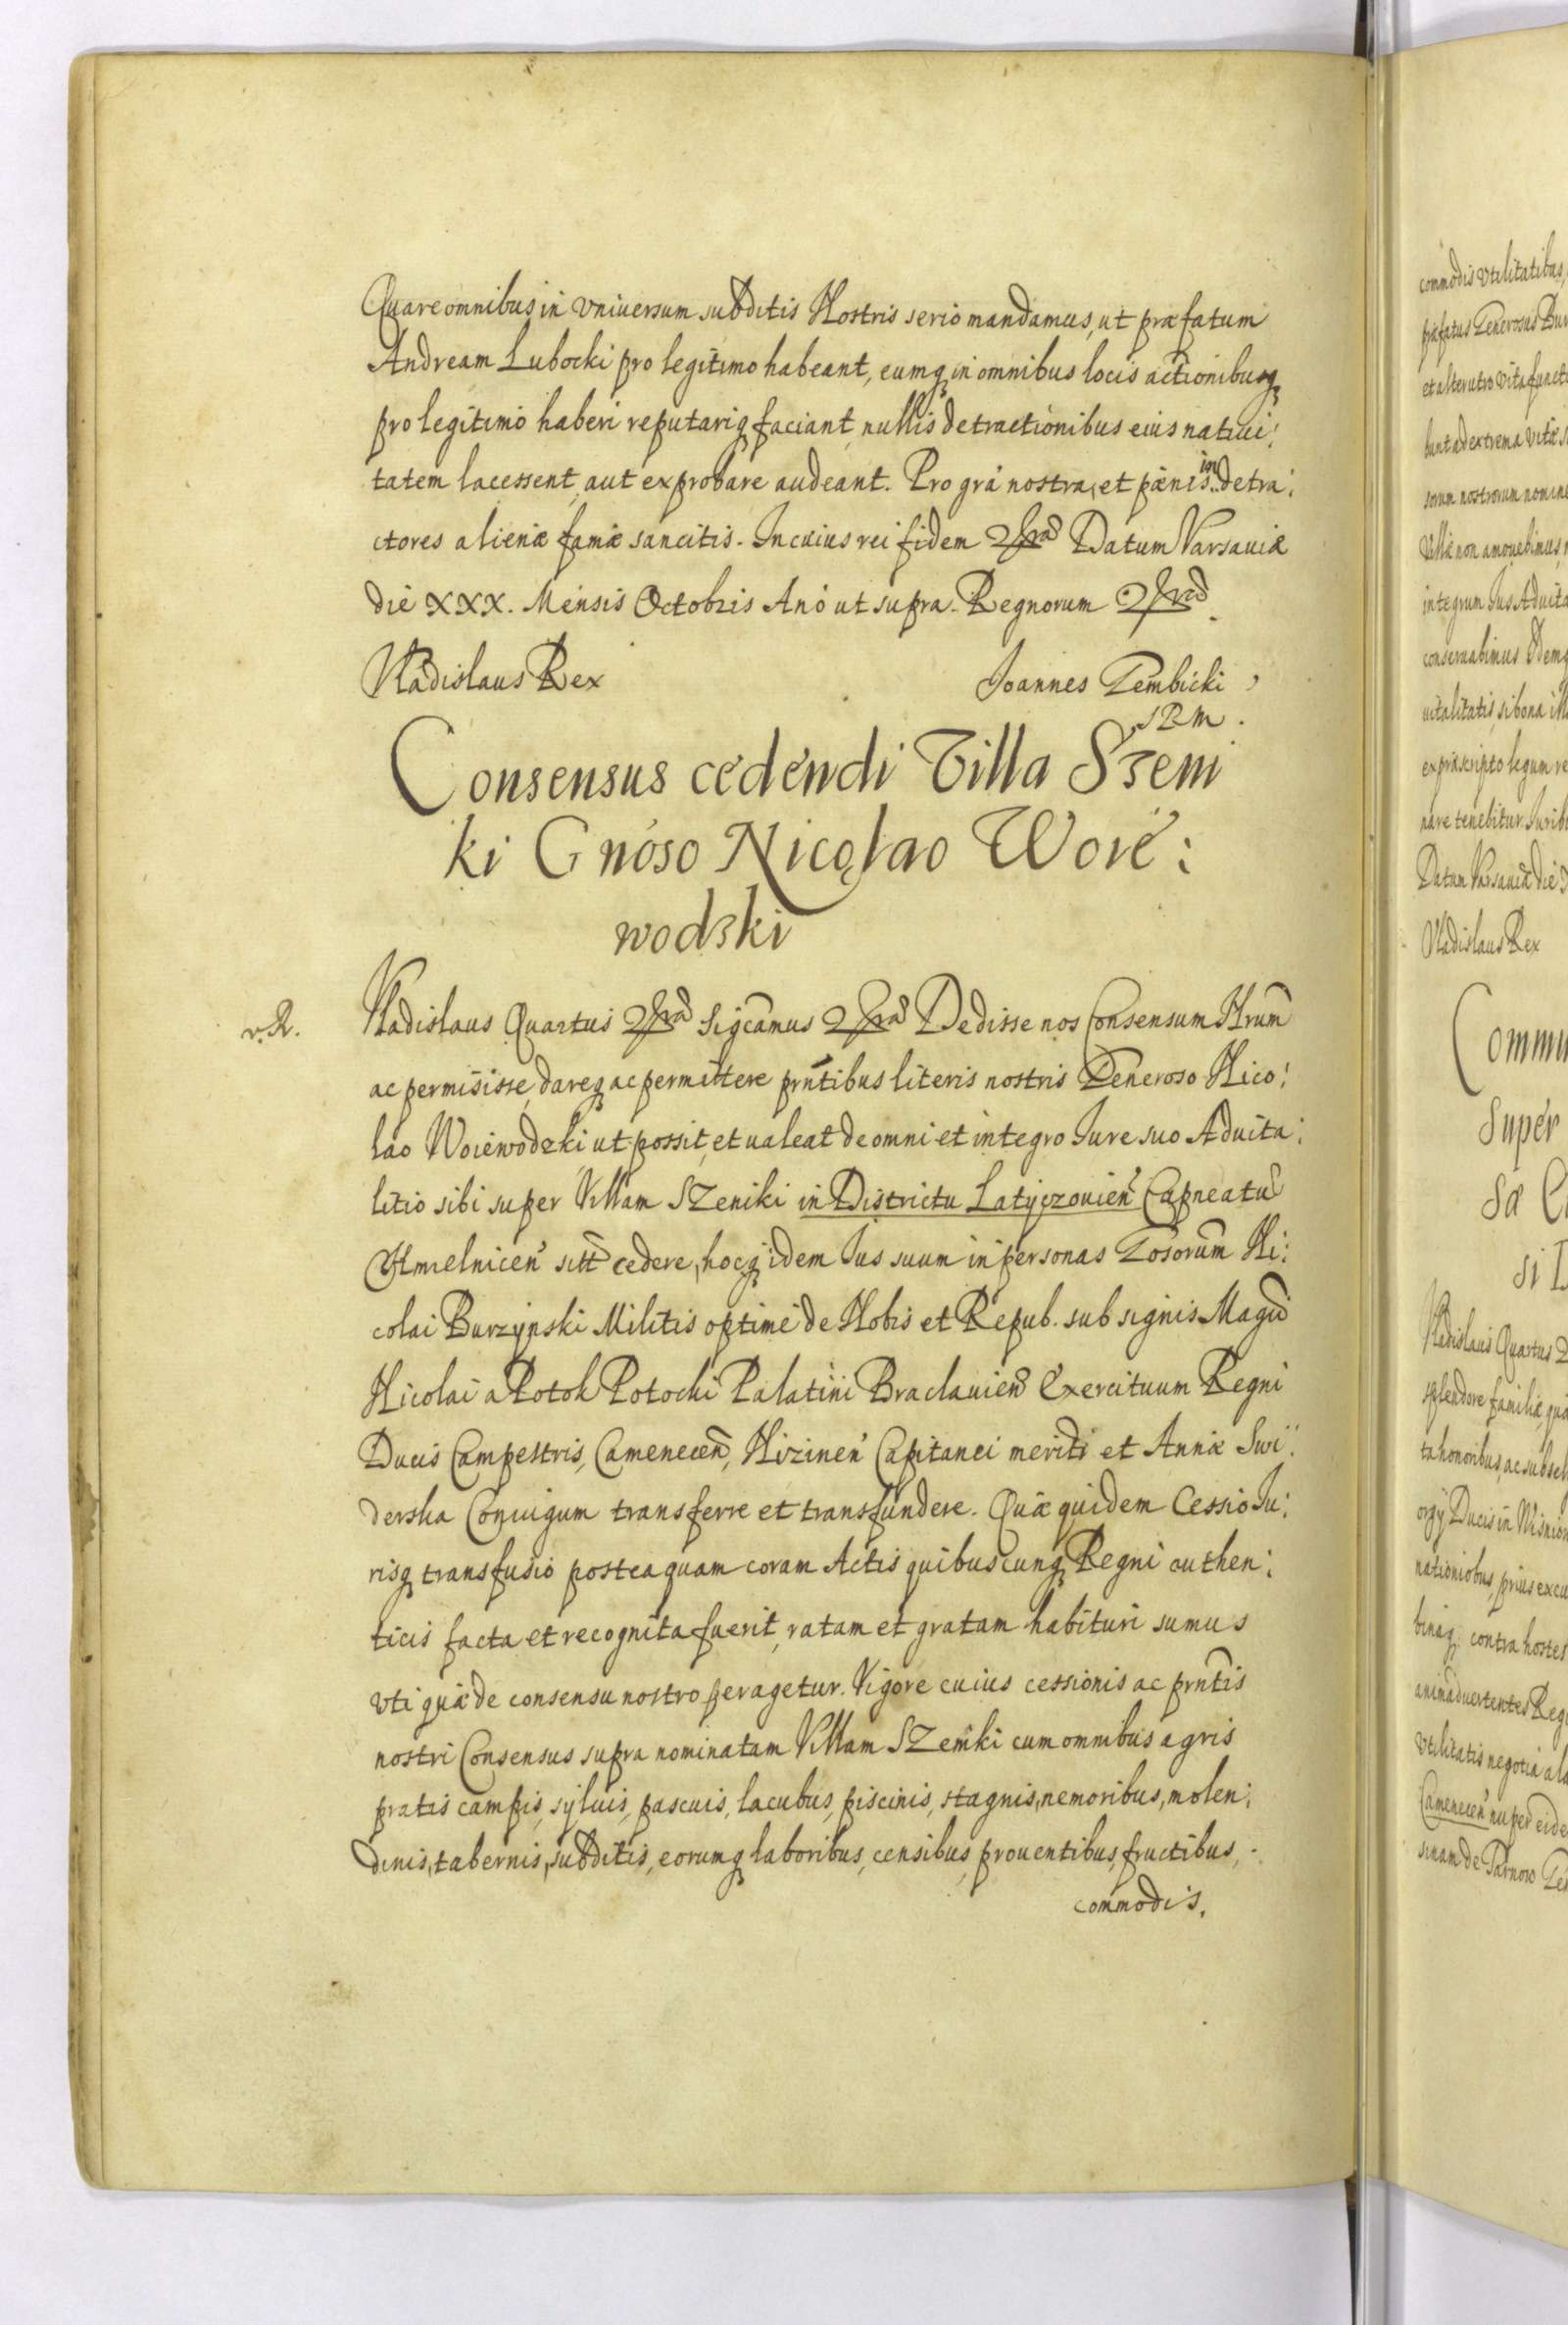 Quare omnibus in vniuersum subditis Nostris serio mandamus, ut præfatum
Andream Lubocki pro legitimo habeant, eumq in omnibus locis actionibusq
pro legitimo haberi reputariq faciant, nullis detractionibus eius natiui:
tatem lacessent, aut exprobare audeant. Pro grá nostra, et pænis in detra:
ctores alienæ famæ sancitis. In cuius rei fidem Datum Varsauiæ
die XXX. Mensis Octobris Anó ut supra. Regnorum
Vladislaus Rex Joannes Gembicki,
SRM.
Consensus cedendi Villa Szeni
ki Gnóso Nicolao Woie:
wodzki
v.R. Vladislaus Quartus Sigcamus Dedisse nos Consensum Nrum
ac permisisse, dareq ac permittere prntibus literis nostris Generoso Nico:
lao Woiewodzki ut possit, et ualeat de omni et integro Jure suo Aduita:
litio sibi super Villam SZeniki in Districtu Latyczouien Capneatu
Chmelnicen sitt cedere, hocq idem Jus suum in personas Gosorum Ni:
colai Burzynski Militis optime de Nobis et Repub. sub signis Magci
Nicolai a Potok Potocki Palatini Braclauien Exercituum Regni
Ducis Campestris, Camenecen, Nizinen Capitanei meriti et Annæ Swi:
derska Coniugum transferre et transfundere. Quæ quidem Cessio Ju:
risq transfusio posteaquam coram Actis quibuscunq Regni authen:
ticis facta et recognita fuerit, ratam et gratam habituri sumus
vti quæ de consensu nostro peragetur. Vigore cuius cessionis ac prntis
nostri Consensus supra nominatam Villam SZeniki cum omnibus agris
pratis campis, syluis, pascuis, lacubus, piscinis, stagnis, nemoribus, molen:
dinis, tabernis, subditis, eorumq laboribus, censibus, prouentibus, fructibus,
commodis.
commodis vtilitatibus,
præfatus Generosus Bur
et alterutro vita funct
bunt ad extrema vitæ
sorum nostrorum nomine
Villæ non amouebimus,
integrum Jus Aduita
conseruabimus Idemq
uitalitatis, si bona
ex præscripto legum re
nare tenebitur. Juribus
Datum Varsauiæ die
Vladislaus Rex
Commu
super
sæ
si
Vladislaus Quartus
splendore familiæ, qua
ta honoribus, ac subsel
orgÿ Ducis in Wisniow
nationiobus, prius excu
binaq contra hostes
animaduertentes Reg
vtilitatis negotia
Camenecen nuper eide
sinam de Tarnow